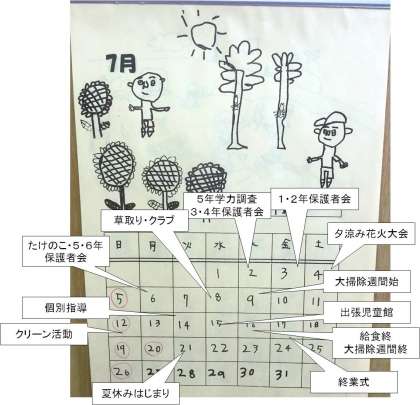 7月
5年学力調査
3・4年保護者会
1・2年保護者会
草取り・クラブ
夕涼み花火大会
たけのこ・5・6年
保護者会
日 月 火 水 木 金 土
1 2 3 4
大掃除週間始
5 6 7 8 9 10 11
個別指導
出張児童館
クリーン活動
12 13 14 15 16 17 18
給食終
大掃除週間終
19 20 21 22 23 24 25
終業式
26 27 28 29 30 31
夏休みはじまり